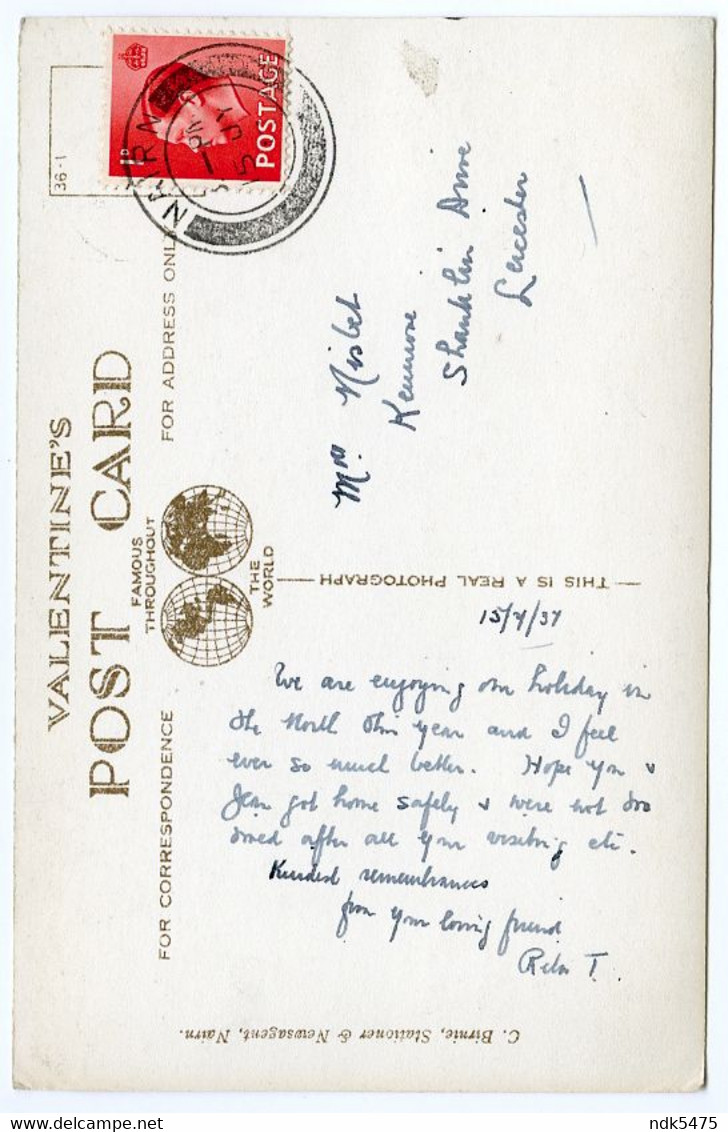 VALENTINE'S
POST CARD
FAMOUS
THROUGHOUT
THE
WORLD
FOR CORRESPONDENCE
FOR ADDRESS ONLY
36-1
1D
POSTAGE
NAIRN
5 - PM
15 JY
15/7/37
We are enjoying our holiday in
the North this year and I feel
ever so much better. Hope you &
Jean got home safely & were not too
tired after all your visiting etc.
Kindest remembrances
from your loving friend
T.
Mrs. Nisbet
Shanklin Drive
Leicester
THIS IS A REAL PHOTOGRAPH
C. Birnie, Stationer & Newsagent, Nairn.
ndk5475